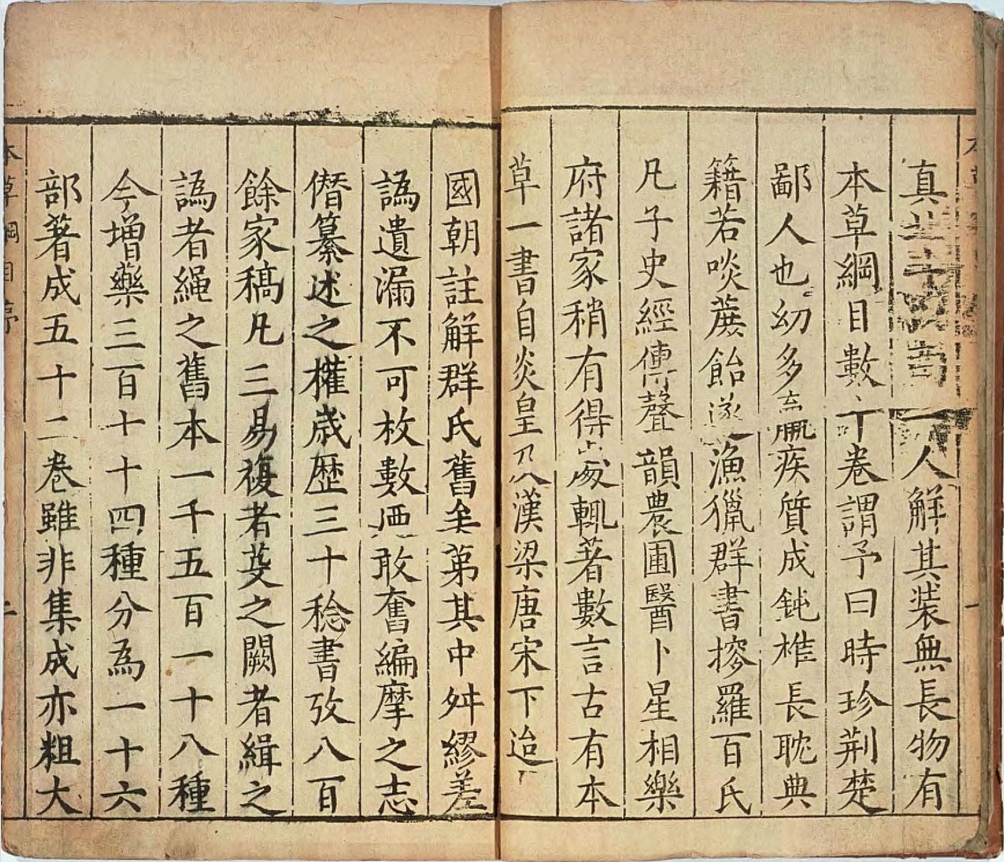 真一人解其裝無長物有
本草綱目數十卷謂予曰時珍荆楚
鄙人也幼多羸疾質成鈍椎長耽典
籍若啖蔗飴遂漁獵群書摉羅百氏
凡子史經傳聲韻農圃醫卜星相樂
府諸家稍有得處輒著數言古有本
草一書自炎皇及漢梁唐宋下迨
國朝註解群氏舊矣第其中舛繆差
譌遺漏不可枚數廼敢奮編摩之志
僭纂述之權歲歷三十稔書攷八百
餘家稿凡三易複者芟之闕者緝之
譌者繩之舊本一千五百一十八種
今增藥三百七十四種分為一十六
部著成五十二卷雖非集成亦粗大
本草綱目序